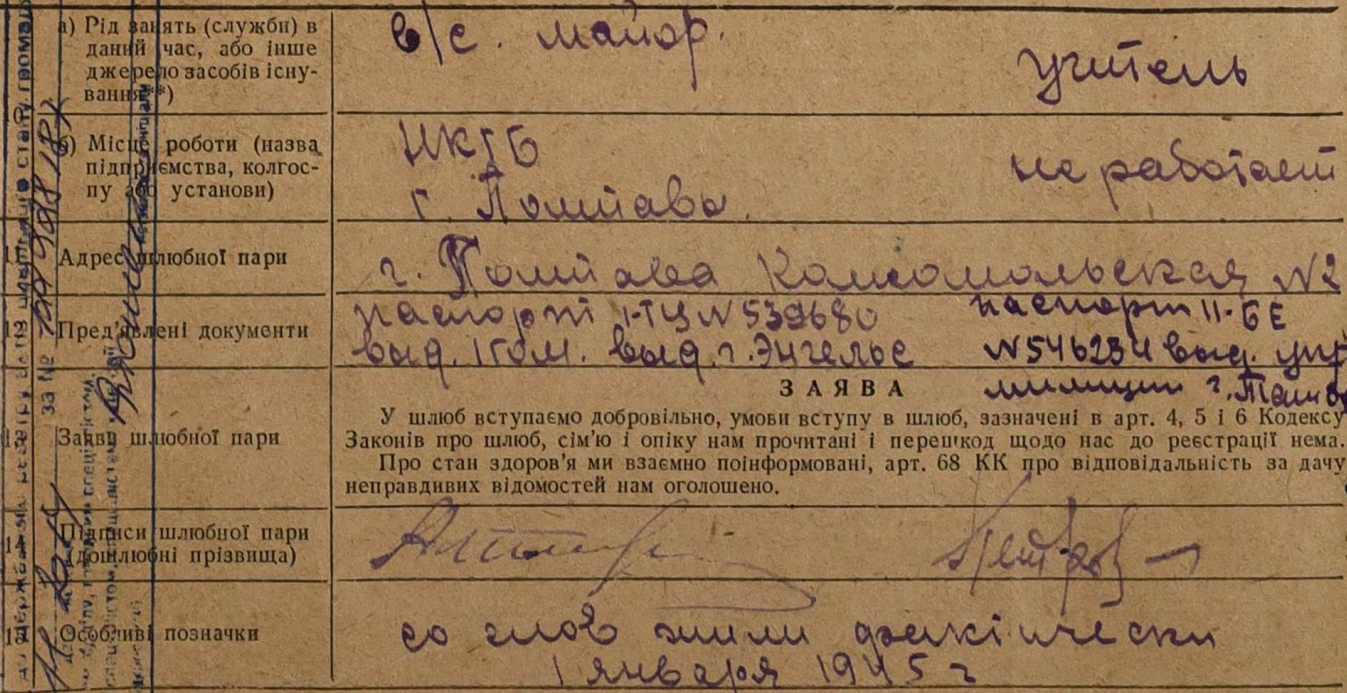 а) Рід занять (служби) в
даний час, або інше
джерело засобів існу-
вання**)
в/с. майор.
учитель
б) Місце роботи (назва
підприємства, колгос-
пу або установи)
НКГБ
г. Полтава.
не работает
Адрес шлюбної пари
г. Полтава Комсомольская №2
12 Пред'явлені документи
паспорт I-ТЦ № 539680
выд. 1 гом. выд. г. Энгельс
паспорт II-БЕ
№546234 выд. упр
милиции г.
ЗАЯВА
13 Заяви шлюбної пари
У шлюб вступаємо добровільно, умови вступу в шлюб, зазначені в арт. 4, 5 і 6 Кодексу
Законів про шлюб, сім'ю і опіку нам прочитані і перешкод щодо нас до реєстрації нема.
Про стан здоров'я ми взаємно поінформовані, арт. 68 КК про відповідальність за дачу
неправдивих відомостей нам оголошено.
14 Підписи шлюбної пари
(дошлюбні прізвища)
15 Особливі позначки
со слов жили фактически
1 января 1945 г
за №